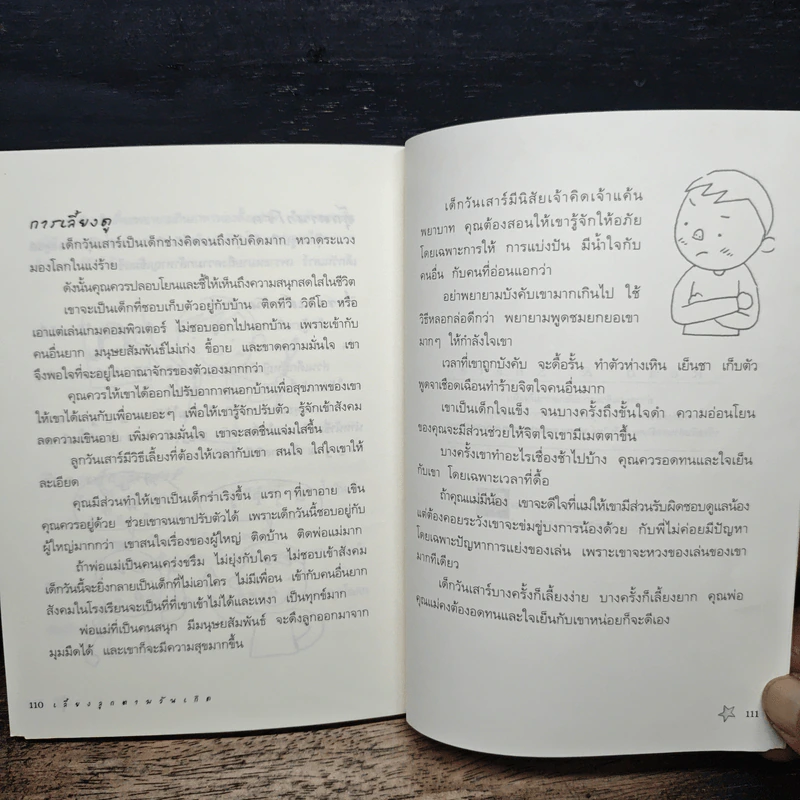 การเลี้ยงดู
เด็กวันเสาร์เป็นเด็กช่างคิดจนถึงกับคิดมาก หวาดระแวง
มองโลกในแง่ร้าย
ดังนั้นคุณควรปลอบโยนและชี้ให้เห็นถึงความสนุกสดใสในชีวิต
เขาจะเป็นเด็กที่ชอบเก็บตัวอยู่กับบ้าน ติดทีวี วิดีโอ หรือ
เอาแต่เล่นเกมคอมพิวเตอร์ ไม่ชอบออกไปนอกบ้าน เพราะเข้ากับ
คนอื่นยาก มนุษยสัมพันธ์ไม่เก่ง ขี้อาย และขาดความมั่นใจ เขา
จึงพอใจที่จะอยู่ในอาณาจักรของตัวเองมากกว่า
คุณควรให้เขาได้ออกไปรับอากาศนอกบ้านเพื่อสุขภาพของเขา
ให้เขาได้เล่นกับเพื่อนเยอะๆ เพื่อให้เขารู้จักปรับตัว รู้จักเข้าสังคม
ลดความเขินอาย เพิ่มความมั่นใจ เขาจะสดชื่นแจ่มใสขึ้น
ลูกวันเสาร์มีวิธีเลี้ยงที่ต้องให้เวลากับเขา สนใจ ใส่ใจเขาให้
ละเอียด
คุณมีส่วนทำให้เขาเป็นเด็กร่าเริงขึ้น แรกๆ ที่เขาอาย เขิน
คุณควรอยู่ด้วย ช่วยเขาจนเขาปรับตัวได้ เพราะเด็กวันนี้ชอบอยู่กับ
ผู้ใหญ่มากกว่า เขาสนใจเรื่องของผู้ใหญ่ ติดบ้าน ติดพ่อแม่มาก
ถ้าพ่อแม่เป็นคนเคร่งขรึม ไม่ยุ่งกับใคร ไม่ชอบเข้าสังคม
เด็กวันนี้จะยิ่งกลายเป็นเด็กที่ไม่เอาใคร ไม่มีเพื่อน เข้ากับคนอื่นยาก
สังคมในโรงเรียนจะเป็นที่ที่เขาเข้าไม่ได้และเหงา เป็นทุกข์มาก
พ่อแม่ที่เป็นคนสนุก มีมนุษยสัมพันธ์ จะดึงลูกออกมาจาก
มุมมืดได้ และเขาก็จะมีความสุขมากขึ้น
110 เลี้ยงลูกตามวันเกิด
เด็กวันเสาร์มีนิสัยเจ้าคิดเจ้าแค้น
พยาบาท คุณต้องสอนให้เขารู้จักให้อภัย
โดยเฉพาะการให้ การแบ่งปัน มีน้ำใจกับ
คนอื่น กับคนที่อ่อนแอกว่า
อย่าพยายามบังคับเขามากเกินไป ใช้
วิธีหลอกล่อดีกว่า พยายามพูดชมยกยอเขา
มากๆ ให้กำลังใจเขา
เวลาที่เขาถูกบังคับ จะดื้อรั้น ทำตัวห่างเหิน เย็นชา เก็บตัว
พูดจาเชือดเฉือนทำร้ายจิตใจคนอื่นมาก
เขาเป็นเด็กใจแข็ง จนบางครั้งถึงขั้นใจดำ ความอ่อนโยน
ของคุณจะมีส่วนช่วยให้จิตใจเขามีเมตตาขึ้น
บางครั้งเขาทำอะไรเชื่องช้าไปบ้าง คุณควรอดทนและใจเย็น
กับเขา โดยเฉพาะเวลาที่ดื้อ
ถ้าคุณแม่มีน้อง เขาจะดีใจที่แม่ให้เขามีส่วนรับผิดชอบดูแลน้อง
แต่ต้องคอยระวังเขาจะข่มขู่บงการน้องด้วย กับพี่ไม่ค่อยมีปัญหา
โดยเฉพาะปัญหาการแย่งของเล่น เพราะเขาจะหวงของเล่นของเขา
มากทีเดียว
เด็กวันเสาร์บางครั้งก็เลี้ยงง่าย บางครั้งก็เลี้ยงยาก คุณพ่อ
คุณแม่คงต้องอดทนและใจเย็นกับเขาหน่อยก็จะดีเอง
111